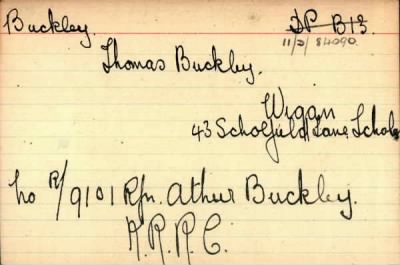 Buckley.
DP B13.
11/2/84090.
Thomas Buckley.
Wigan
43 Scholefield Lane, Schols
No R/9101 Rfn. Athur Buckley.
K.R.R.C.